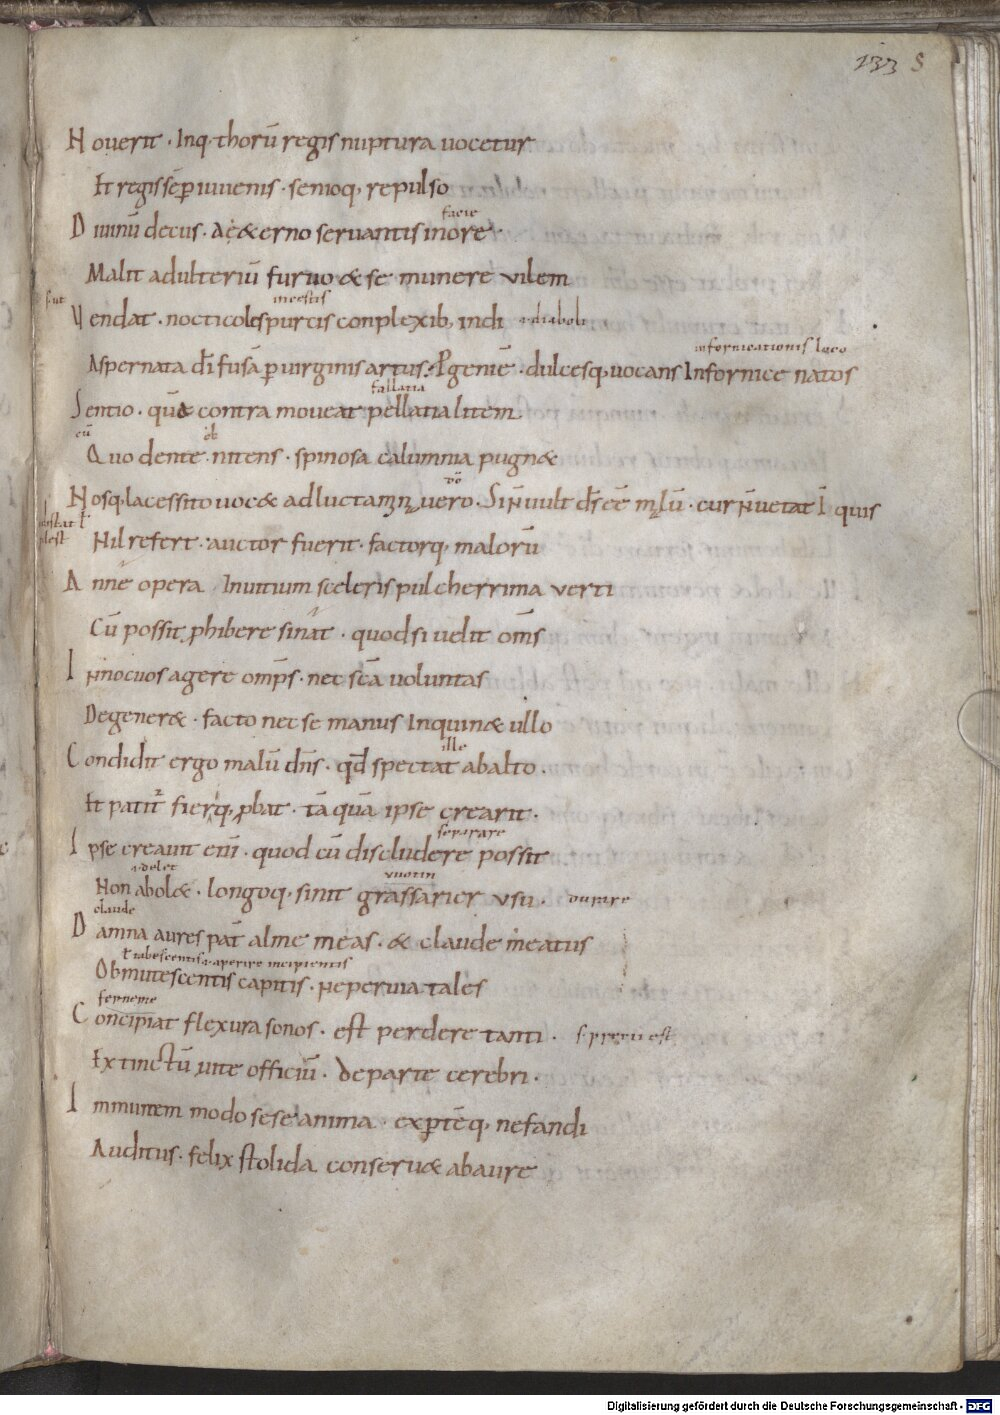 133 S
Nouerit · Inq; thorū regis nuptura uocetur
Et regis sēp iuuenis · semoq; repulso
facie
Diuinū decus · Aet&erno seruantis inore ·
Malit adulteriū furuo & se munere vilem
mestis
Vendat · nocticole spurcis conplexib; indi
.i. diaboli
in fornicationis loco
Aspernata dī fusā p uirginis artus · Pgeniē · dulcesq; uocans Infornice natos
fallatia
Sentio · quę contra moueat pellatia litem
cū ob
Quo dente nitens · spinosa calumnia pugn&
dō
Nosq; lacessito uoc& adluctam uero · Si n̄ uult d̄s ēē malū · cur n̄ uetat ł quis
Nil refert · auctor fuerit · factorq; malorū
Anne opera Inuitium sceleris pulcherrima verti
Cū possit phibere sinat · quod si uelit om̄s
Innocuos agere omp̄s · nec sc̄a uoluntas
Degener& · facto nec se manus Inquin& ullo
ille
Condidit ergo malū dn̄s · qd̄ spectat abalto ·
Et patit fierq; pbat · tā quā ipse crearit ·
separare
Ipse creauit enī · quod cū discludere possit
.i. delet
Non abol& · longoq; sinit grassarier vsu ·
claude
Damna aures pat̄ alme meas · & claude meatus
ł tabescentis .i. aperire incipientis
Obmutescentis capitis · neperuia tales
Concipiat flexura sonos · est perdere tanti ·
Extinctū uite officiū · de parte cerebri ·
Inmunem modo sese anima · exptēq; nefandi
Auditus · felix stolida conseru& abaure
Digitalisierung gefördert durch die Deutsche Forschungsgemeinschaft - DFG